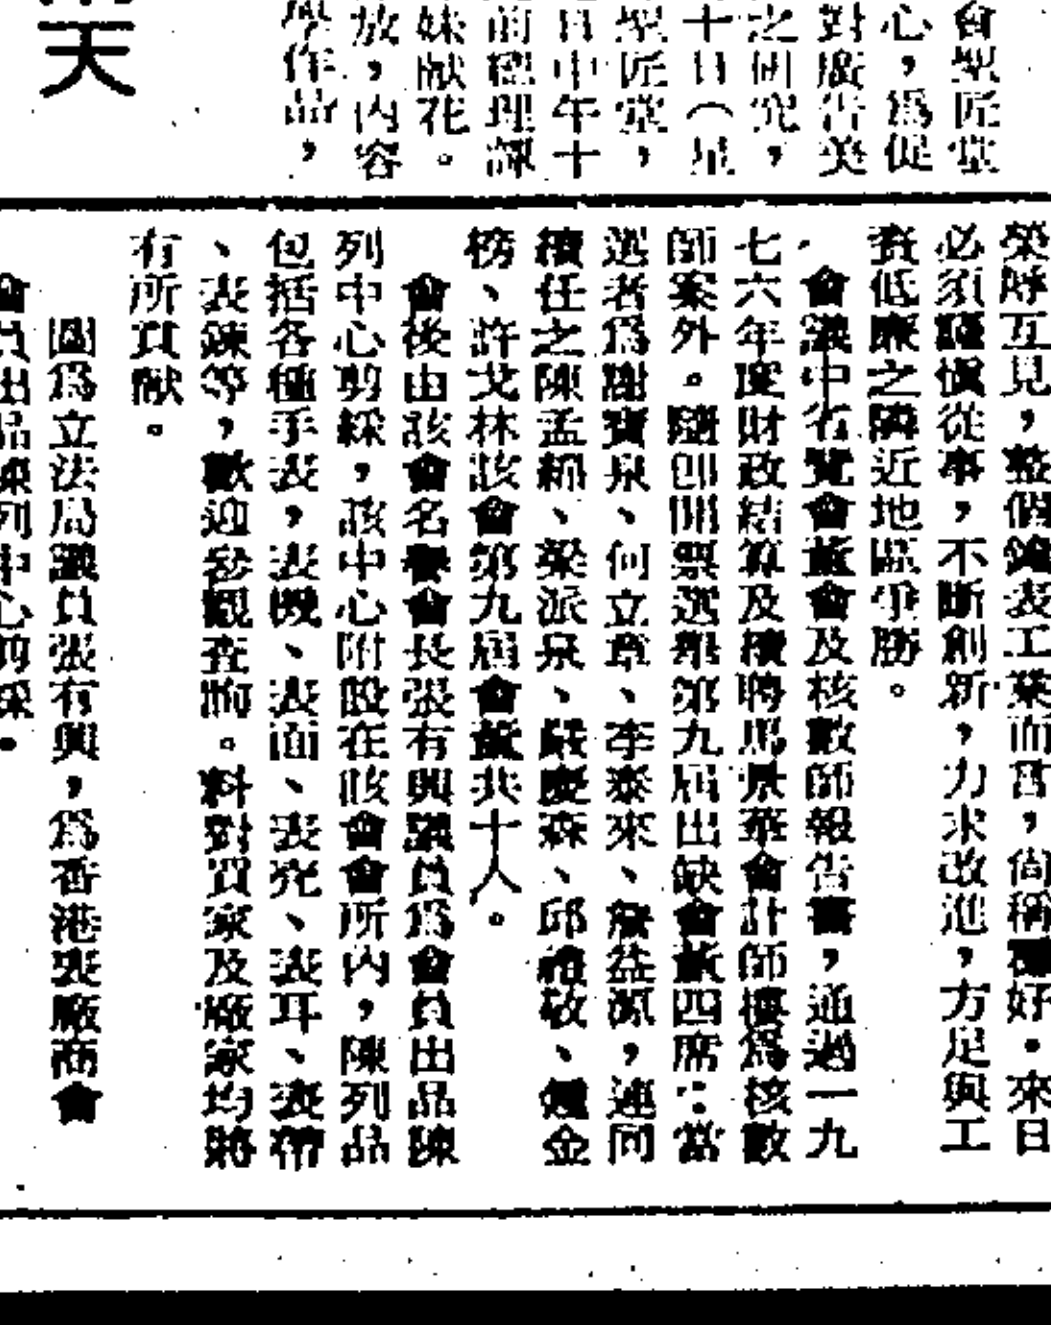 會堅匠堂
心，爲促
對廣告美
之研究，
十日（星
堅匠堂，
日中午十
前經理譚
妹献花。
放，內容
學作品，
天
榮辱互見，整個鐘表工業而言，尙稱穩好。來日
必須謹愼從事，不斷創新，力求改進，方足與工
資低廉之隣近地區爭勝。
會議中省覽會董會及核數師報告書，通過一九
七六年度財政結算及續聘馬景華會計師樓爲核數
師案外。隨卽開票選舉第九屆出缺會董四席：當
選者爲謝寶泉、何立章、李泰來、詹益源，連同
續任之陳孟綿、梁派泉、嚴慶森、邱禮敬、鍾金
榜、許戈林該會第九屆會董共十人。
會後由該會名譽會長張有興議員爲會員出品陳
列中心剪綵，該中心附設在該會會所內，陳列品
包括各種手表，表機、表面、表壳、表耳、表帶
、表鍊等，歡迎參觀查詢。料對買家及廠家均將
有所貢献。
圖爲立法局議員張有興，爲香港表廠商會
會員出品陳列中心剪綵。